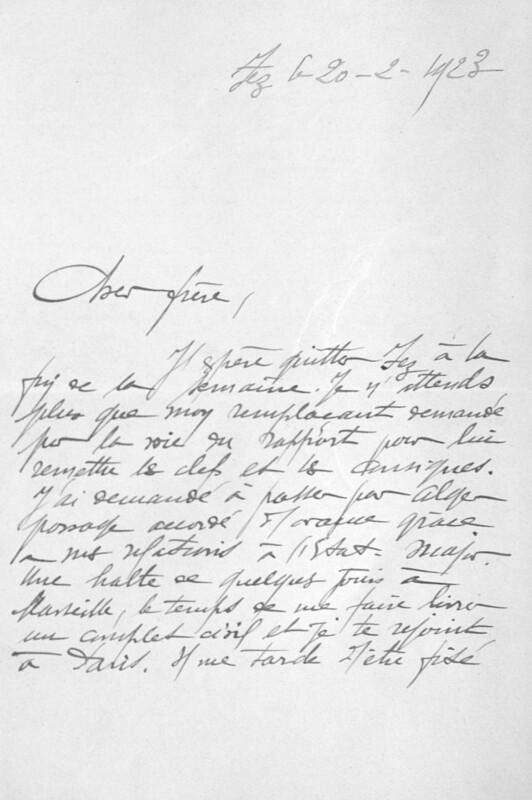 Fez le 20-2-1923
Cher frère,
J'espère quitter Fez à la
fin de la semaine. Je n'attends
plus que mon remplaçant demandé
par la voie du rapport pour lui
remettre les clefs et les consignes.
J'ai demandé à passer par Alger
passage accordé d'avance grâce
a mes relations à l'Etat-Major.
Une halte de quelques jours à
Marseille, le temps de me faire livrer
un complet civil et je te rejoint
à Paris. Il me tarde d'être fixé